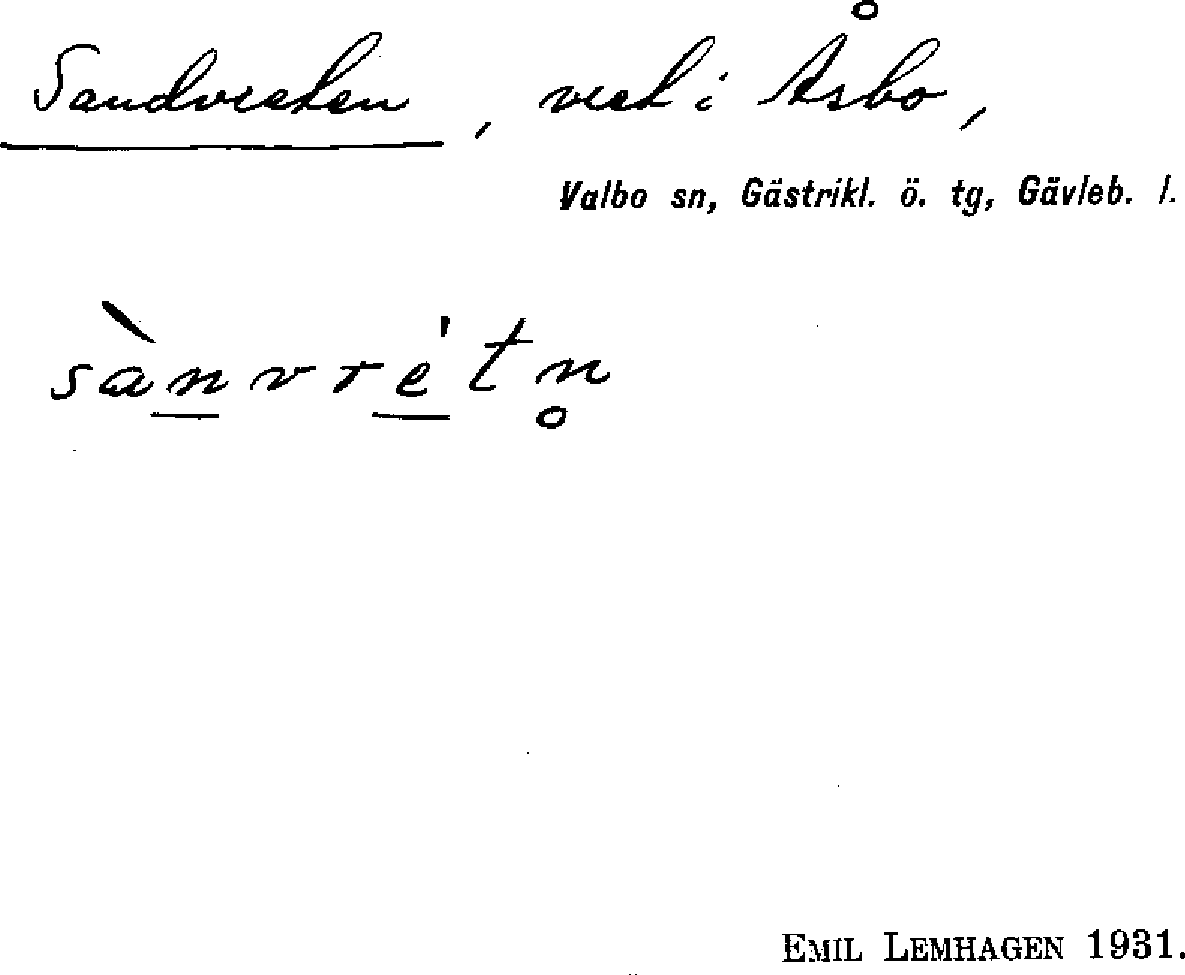 Sandvreten, vret i Åsbo,
Valbo sn, Gästrikl. ö. tg, Gävleb. l.
sànvrétn̥
EMIL LEMHAGEN 1931.